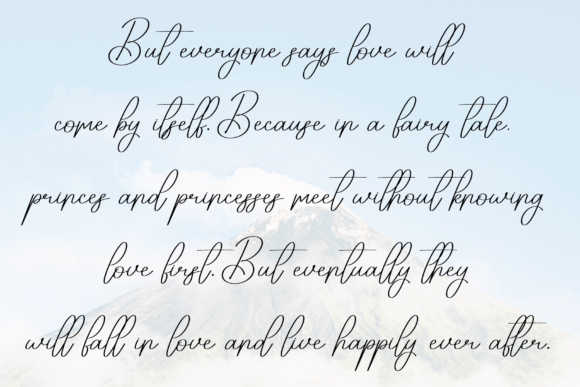 But everyone says love will
come by itself. Because in a fairy tale.
princes and princesses meet without knowing
love first. But eventually they
will fall in love and live happily ever after.